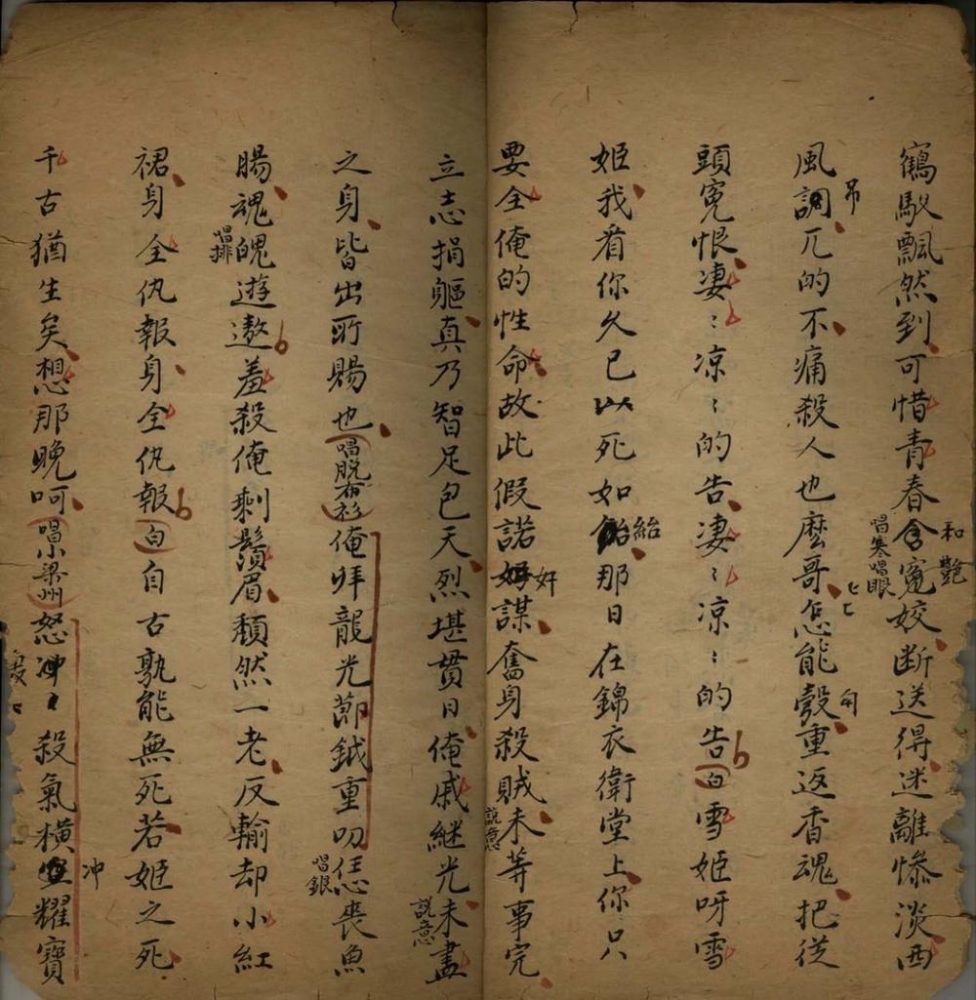 鶴馭飄然到可惜青春含寃姣断送得迷離慘淡西
和艷
唱寒唱眼
風調兀的不痛殺人也麽哥怎能彀重返香魂把従
吊
句
頭寃恨凄〻凉〻的告凄〻凉〻的告(白)雪姬呀雪
姬我看你久已以死如飴那日在錦衣衛堂上你只
紿
要全俺的性命故此假諾奸謀奮身殺賊未等事完
奸
説意
立志捐軀真乃智足包天烈堪貫日俺戚継光未盡
説意
之身皆出所賜也(唱脱布衫)俯拜龍光節鉞重叨恁喪魚
唱銀
腸魂魄遊遨羞殺俺剩鬚眉頽然一老反輸却小紅
唱排
裙身全仇報身全仇報(白)自古孰能無死若姬之死
千古猶生矣想那晚呵(唱小梁州)怒冲〻殺氣横空耀寶
冲